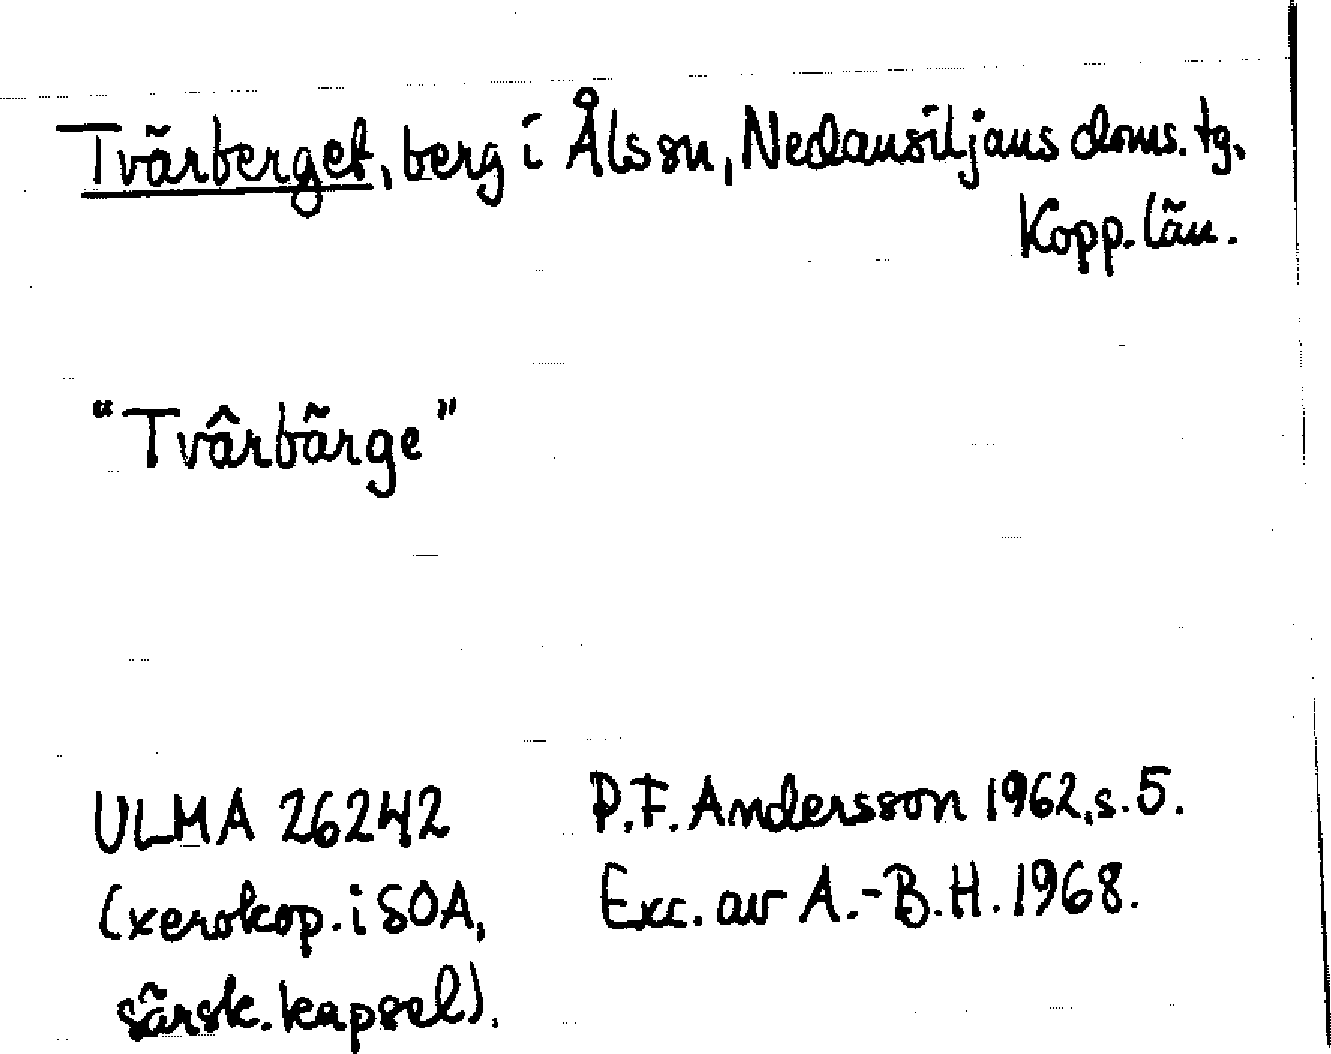 Tvärberget, berg i Ål sn, Nedansiljans doms. tg,
Kopp. län.
"Tvârbärge"
ULMA 26242
(xerokop. i SOA,
särsk. kapsel).
P.F. Andersson 1962, s. 5.
Exc. av A.-B.H. 1968.